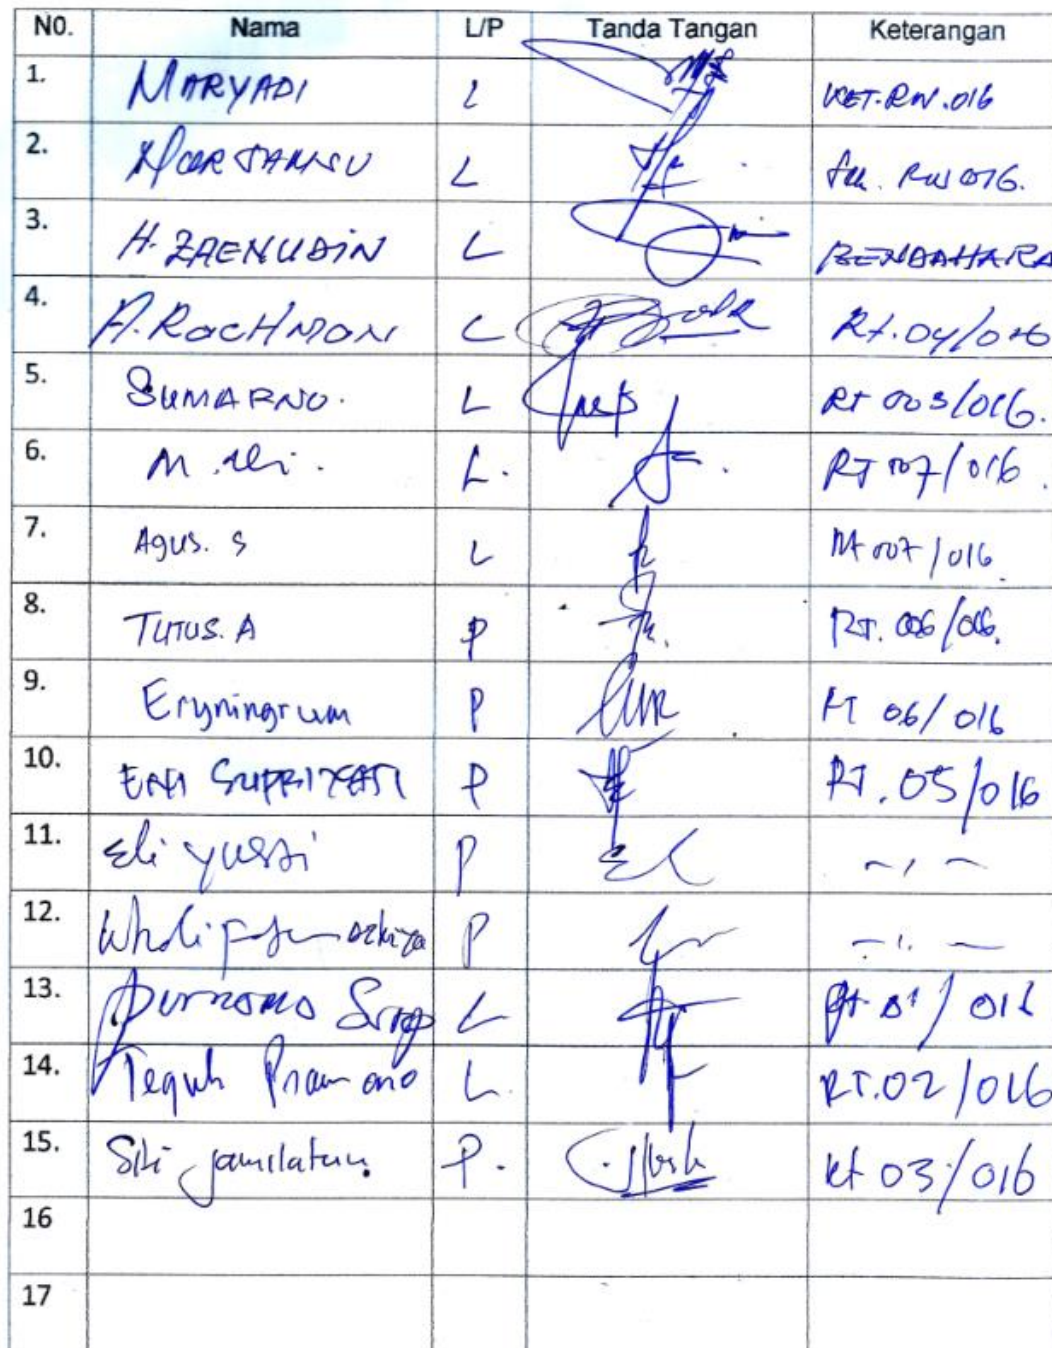 N0. Nama L/P Tanda Tangan Keterangan
1. MARYADI L KET. RW. 016
2. L RW 016.
3. H. ZAENUDIN L BENDAHARA
4. A. ROCHMAN L Rt. 04/016
5. SUMARNO. L RT 003/016.
6. M. Ali. L. RT 007/016.
7. Agus. S L 007/016
8. TUTUS. A P RT. 006/016.
9. Eryningrum P RT 06/016
10. ENI SUPRIYATI P RT. 05/016
11. Eli yusri P
12. P
13. L 016
14. Teguh Pramono L. RT. 02/016
15. Siti jamilatun P. Rt 03/016
16
17